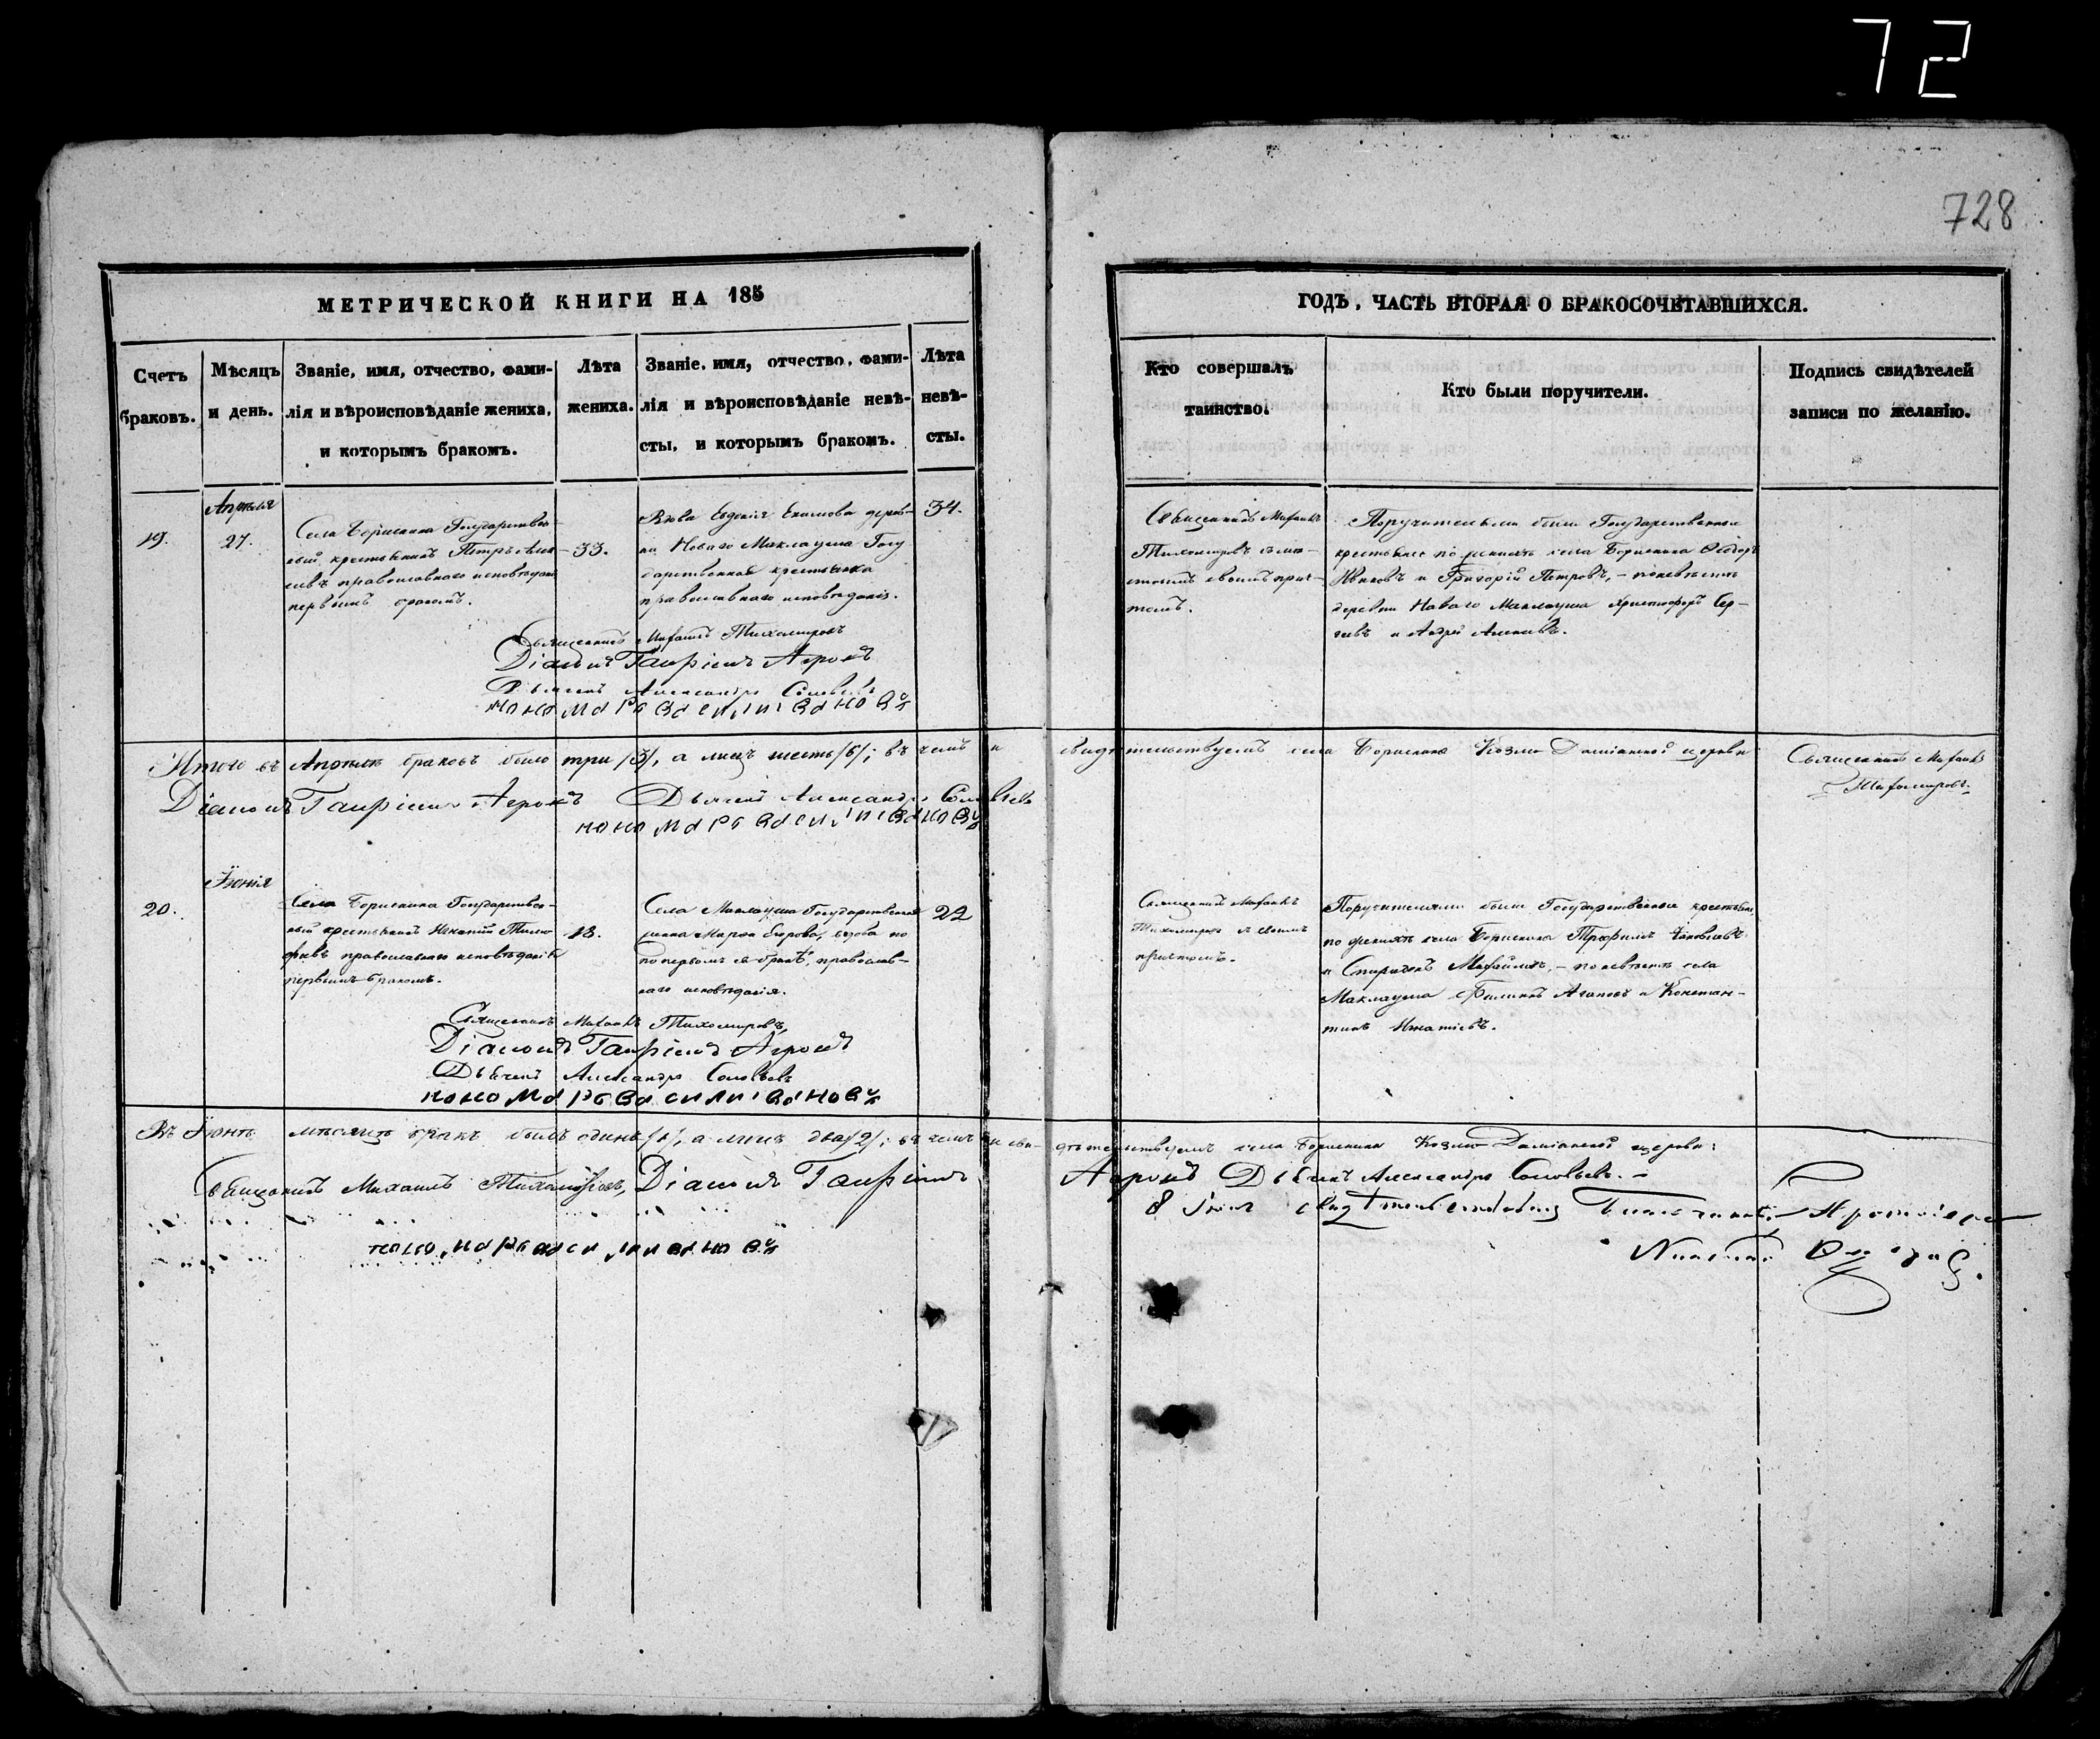 72
728
МЕТРИЧЕСКОЙ КНИГИ НА 185
ГОДЪ, ЧАСТЬ ВТОРАЯ О БРАКОСОЧЕТАВШИХСЯ.
Счетъ
браковъ.
Мѣсяцъ
и день.
Званіе, имя, отчество, фами-
лія и вѣроисповѣданіе жениха,
и которымъ бракомъ.
Лѣта
жениха.
Званіе, имя, отчество, фами-
лія и вѣроисповѣданіе невѣ-
сты, и которымъ бракомъ.
Лѣта
невѣ-
сты.
Кто совершалъ
таинство.
Кто были поручители.
Подпись свидѣтелей
записи по желанію.
19.
Апрѣля
27.
Села Борискина Государствен-
ный крестьянинъ Петръ
православнаго исповѣданія
первымъ бракомъ.
33.
Вдова Евдокія Екимова дерев-
ни Новаго Маклауша Госу
дарственная крестьянка
православнаго исповѣданія.
34.
Священникъ Михаилъ
Тихомировъ съ
своимъ прич-
томъ.
Поручителями были Государственные
крестьяне по женихѣ села Борискина Ѳедоръ
Ивановъ и Григорій Петровъ, – по невѣстѣ
деревни Новаго Маклауша Христофоръ Сер-
геевъ и Андрей
Священникъ Михаилъ Тихомировъ
Діаконъ Агровъ
Дьячекъ Александръ Соловьевъ
Пономарь Василий Ивановъ
Итого въ Апрѣлѣ браковъ было три /3/, а лицъ шесть /6/; въ чемъ и
свидѣтельствуемъ села Борискина Козмо Даміанской церкви
Священникъ Михаилъ
Тихомировъ.
Діаконъ Агровъ Дьячекъ Александръ Соловьевъ
Пономарь Василий Ивановъ
20.
Іюнія
Села Борискина Государствен-
ный крестьянинъ Игнатій Тимо
феевъ православнаго исповѣданія
первымъ бракомъ.
18.
Села Маклауша Государственная
вдова по
по первомъ ея бракѣ, православ-
наго исповѣданія.
22
Священникъ Михаилъ
Тихомировъ съ своимъ
причтомъ.
Поручителями были Государственные крестьяне,
по женихѣ села Борискина Трофимъ Яковлевъ
и Спиридонъ Михайловъ, – по невѣстѣ села
Маклауша Филипъ Агаповъ и Констан-
тинъ Игнатіевъ.
Священникъ Михаилъ Тихомировъ,
Діаконъ Агровъ
Дьячекъ Александръ Соловьевъ
Пономарь Василий Ивановъ
Въ Іюнѣ мѣсяцѣ бракъ былъ одинъ /1/, а лицъ два /2/; въ чемъ и сви-
дѣтельствуемъ села Борискина Козмо-Даміанской церкви:
Священникъ Михаилъ Тихомировъ, Діаконъ
Агровъ Дьячекъ Александръ Соловьевъ. –
8 Іюня
Пономарь Василий Ивановъ